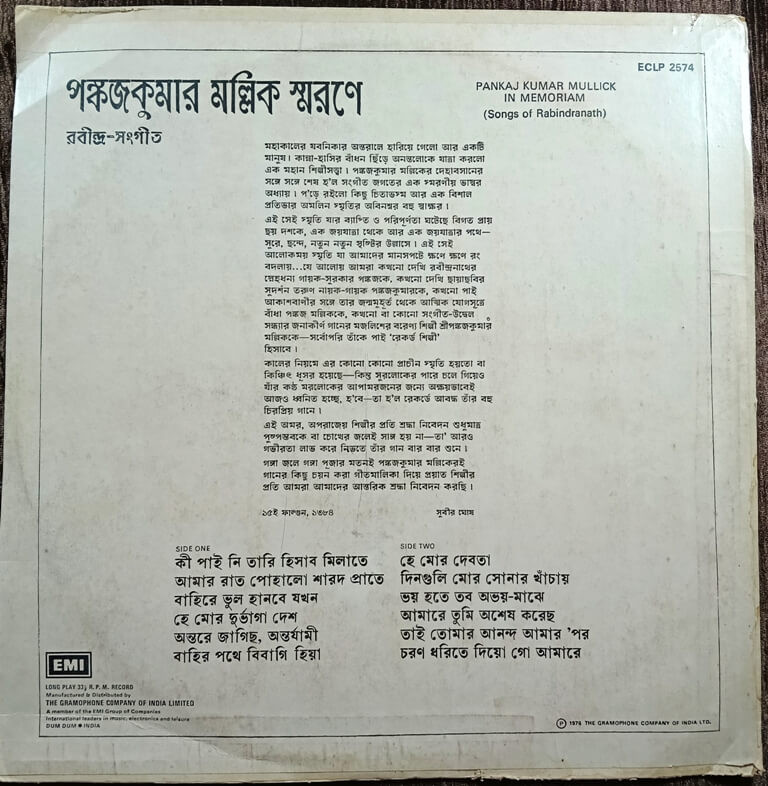 ECLP 2574
পঙ্কজকুমার মল্লিক স্মরণে
রবীন্দ্র-সংগীত
PANKAJ KUMAR MULLICK
IN MEMORIAM
(Songs of Rabindranath)
মহাকালের যবনিকার অন্তরালে হারিয়ে গেলো আর একটি
মানুষ। কান্না-হাসির বাঁধন ছিঁড়ে অনন্তলোকে যাত্রা করলো
এক মহান শিল্পীসত্ত্বা। পঙ্কজকুমার মল্লিকের দেহাবসানের
সঙ্গে সঙ্গে শেষ হ'ল সংগীত জগতের এক স্মরণীয় ভাস্বর
অধ্যায়। প'ড়ে রইলো কিছু চিতাভস্ম আর এক বিশাল
প্রতিভার অমলিন স্মৃতির অবিনশ্বর বহু স্বাক্ষর।
এই সেই স্মৃতি যার ব্যাপ্তি ও পরিপূর্ণতা ঘটেছে বিগত প্রায়
ছয় দশকে, এক জয়যাত্রা থেকে আর এক জয়যাত্রার পথে—
সুরে, ছন্দে, নতুন নতুন সৃষ্টির উল্লাসে। এই সেই
আলোকময় স্মৃতি যা আমাদের মানসপটে ক্ষণে ক্ষণে রং
বদলায়...যে আলোয় আমরা কখনো দেখি রবীন্দ্রনাথের
স্নেহধন্য গায়ক-সুরকার পঙ্কজকে, কখনো দেখি ছায়াছবির
সুদর্শন তরুণ নায়ক-গায়ক পঙ্কজকুমারকে, কখনো পাই
আকাশবাণীর সঙ্গে তার জন্মমুহূর্ত থেকে আত্মিক যোগসূত্রে
বাঁধা পঙ্কজ মল্লিককে, কখনো বা কোনো সংগীত-উদ্বেল
সন্ধ্যার জনাকীর্ণ গানের মজলিশের বরেণ্য শিল্পী শ্রীপঙ্কজকুমার
মল্লিককে—সর্বোপরি তাঁকে পাই 'রেকর্ড শিল্পী'
হিসাবে।
কালের নিয়মে এর কোনো কোনো প্রাচীন স্মৃতি হয়তো বা
কিঞ্চিৎ ধূসর হয়েছে—কিন্তু সুরলোকের পারে চলে গিয়েও
যাঁর কণ্ঠ মরলোকের আপামরজনের জন্যে অক্ষয়ভাবেই
আজও ধ্বনিত হচ্ছে, হ'বে—তা হ'ল রেকর্ডে আবদ্ধ তাঁর বহু
চিরপ্রিয় গানে।
এই অমর, অপরাজেয় শিল্পীর প্রতি শ্রদ্ধা নিবেদন শুধুমাত্র
পুষ্পস্তবকে বা চোখের জলেই সাঙ্গ হয় না—তা' আরও
গভীরতা লাভ করে নিভৃতে তাঁর গান বার বার শুনে।
গঙ্গা জলে গঙ্গা পূজার মতনই পঙ্কজকুমার মল্লিকেরই
গানের কিছু চয়ন করা গীতমালিকা দিয়ে প্রয়াত শিল্পীর
প্রতি আমরা আমাদের আন্তরিক শ্রদ্ধা নিবেদন করছি।
১৫ই ফাল্গুন, ১৩৮৪
সুবীর ঘোষ
SIDE ONE
কী পাই নি তারি হিসাব মিলাতে
আমার রাত পোহালো শারদ প্রাতে
বাহিরে ভুল হানবে যখন
হে মোর দুর্ভাগা দেশ
অন্তরে জাগিছ, অন্তর্যামী
বাহির পথে বিবাগি হিয়া
SIDE TWO
হে মোর দেবতা
দিনগুলি মোর সোনার খাঁচায়
ভয় হতে তব অভয়-মাঝে
আমারে তুমি অশেষ করেছ
তাই তোমার আনন্দ আমার 'পর
চরণ ধরিতে দিয়ো গো আমারে
EMI
LONG PLAY 33⅓ R.P.M. RECORD
Manufactured & Distributed by
THE GRAMOPHONE COMPANY OF INDIA LIMITED
A member of the EMI Group of Companies
International leaders in music, electronics and leisure
DUM DUM ● INDIA
Ⓟ 1978 THE GRAMOPHONE COMPANY OF INDIA LTD.